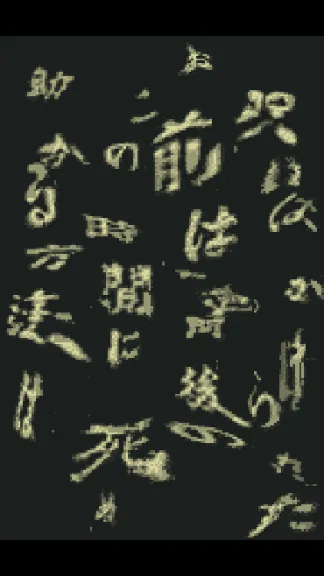 呪いはかけられた
お前は一週間後の
この時間に死ぬ
助かる方法は